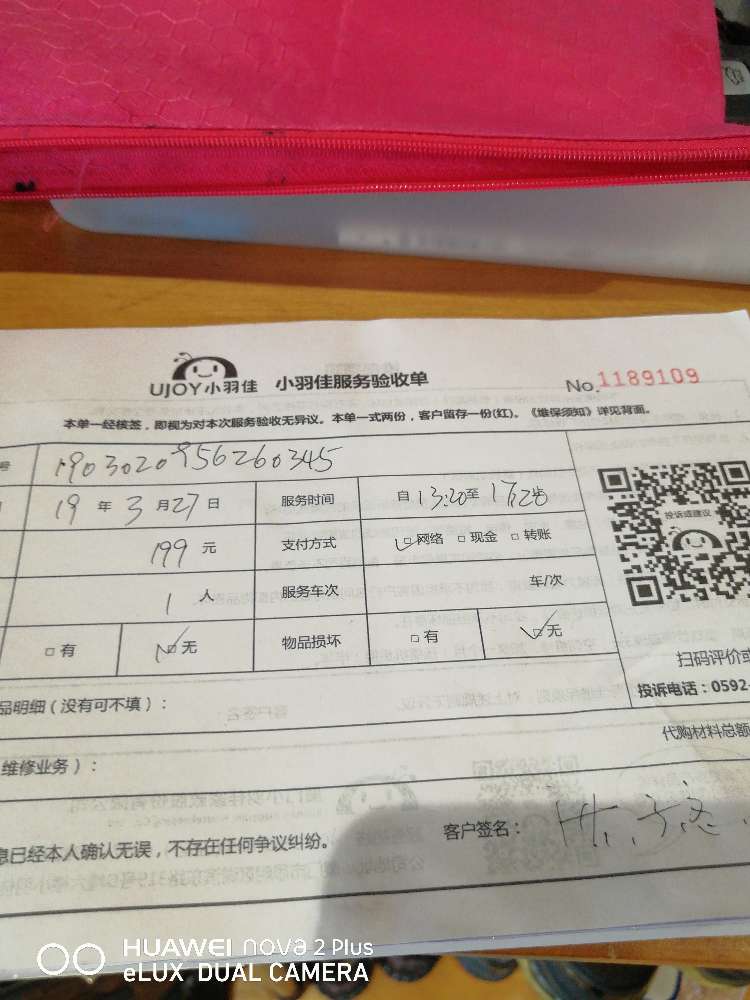 UJOY小羽佳 小羽佳服务验收单
No.1189109
本单一经核签，即视为对本次服务验收无异议。本单一式两份，客户留存一份(红)。《维保须知》详见背面。
号 1903020956260345
19 年 3 月 27 日 服务时间 自 13:20 至
199 元 支付方式 网络 现金 转账
1 人 服务车次 车/次
有 无 物品损坏 有 无
投诉或建议
扫码评价或
投诉电话：0592-
品明细（没有可不填）：
代购材料总额
维修业务）：
息已经本人确认无误，不存在任何争议纠纷。
客户签名：
HUAWEI nova 2 Plus
eLUX DUAL CAMERA